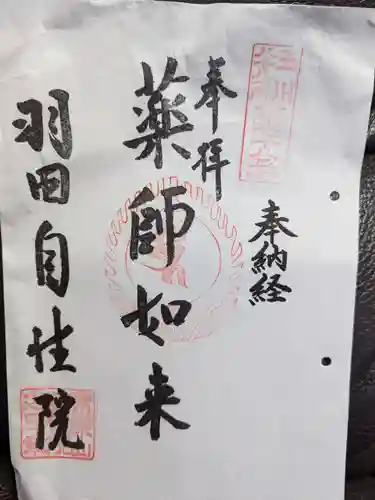 奉納経
奉拝
薬師如来
羽田自性院